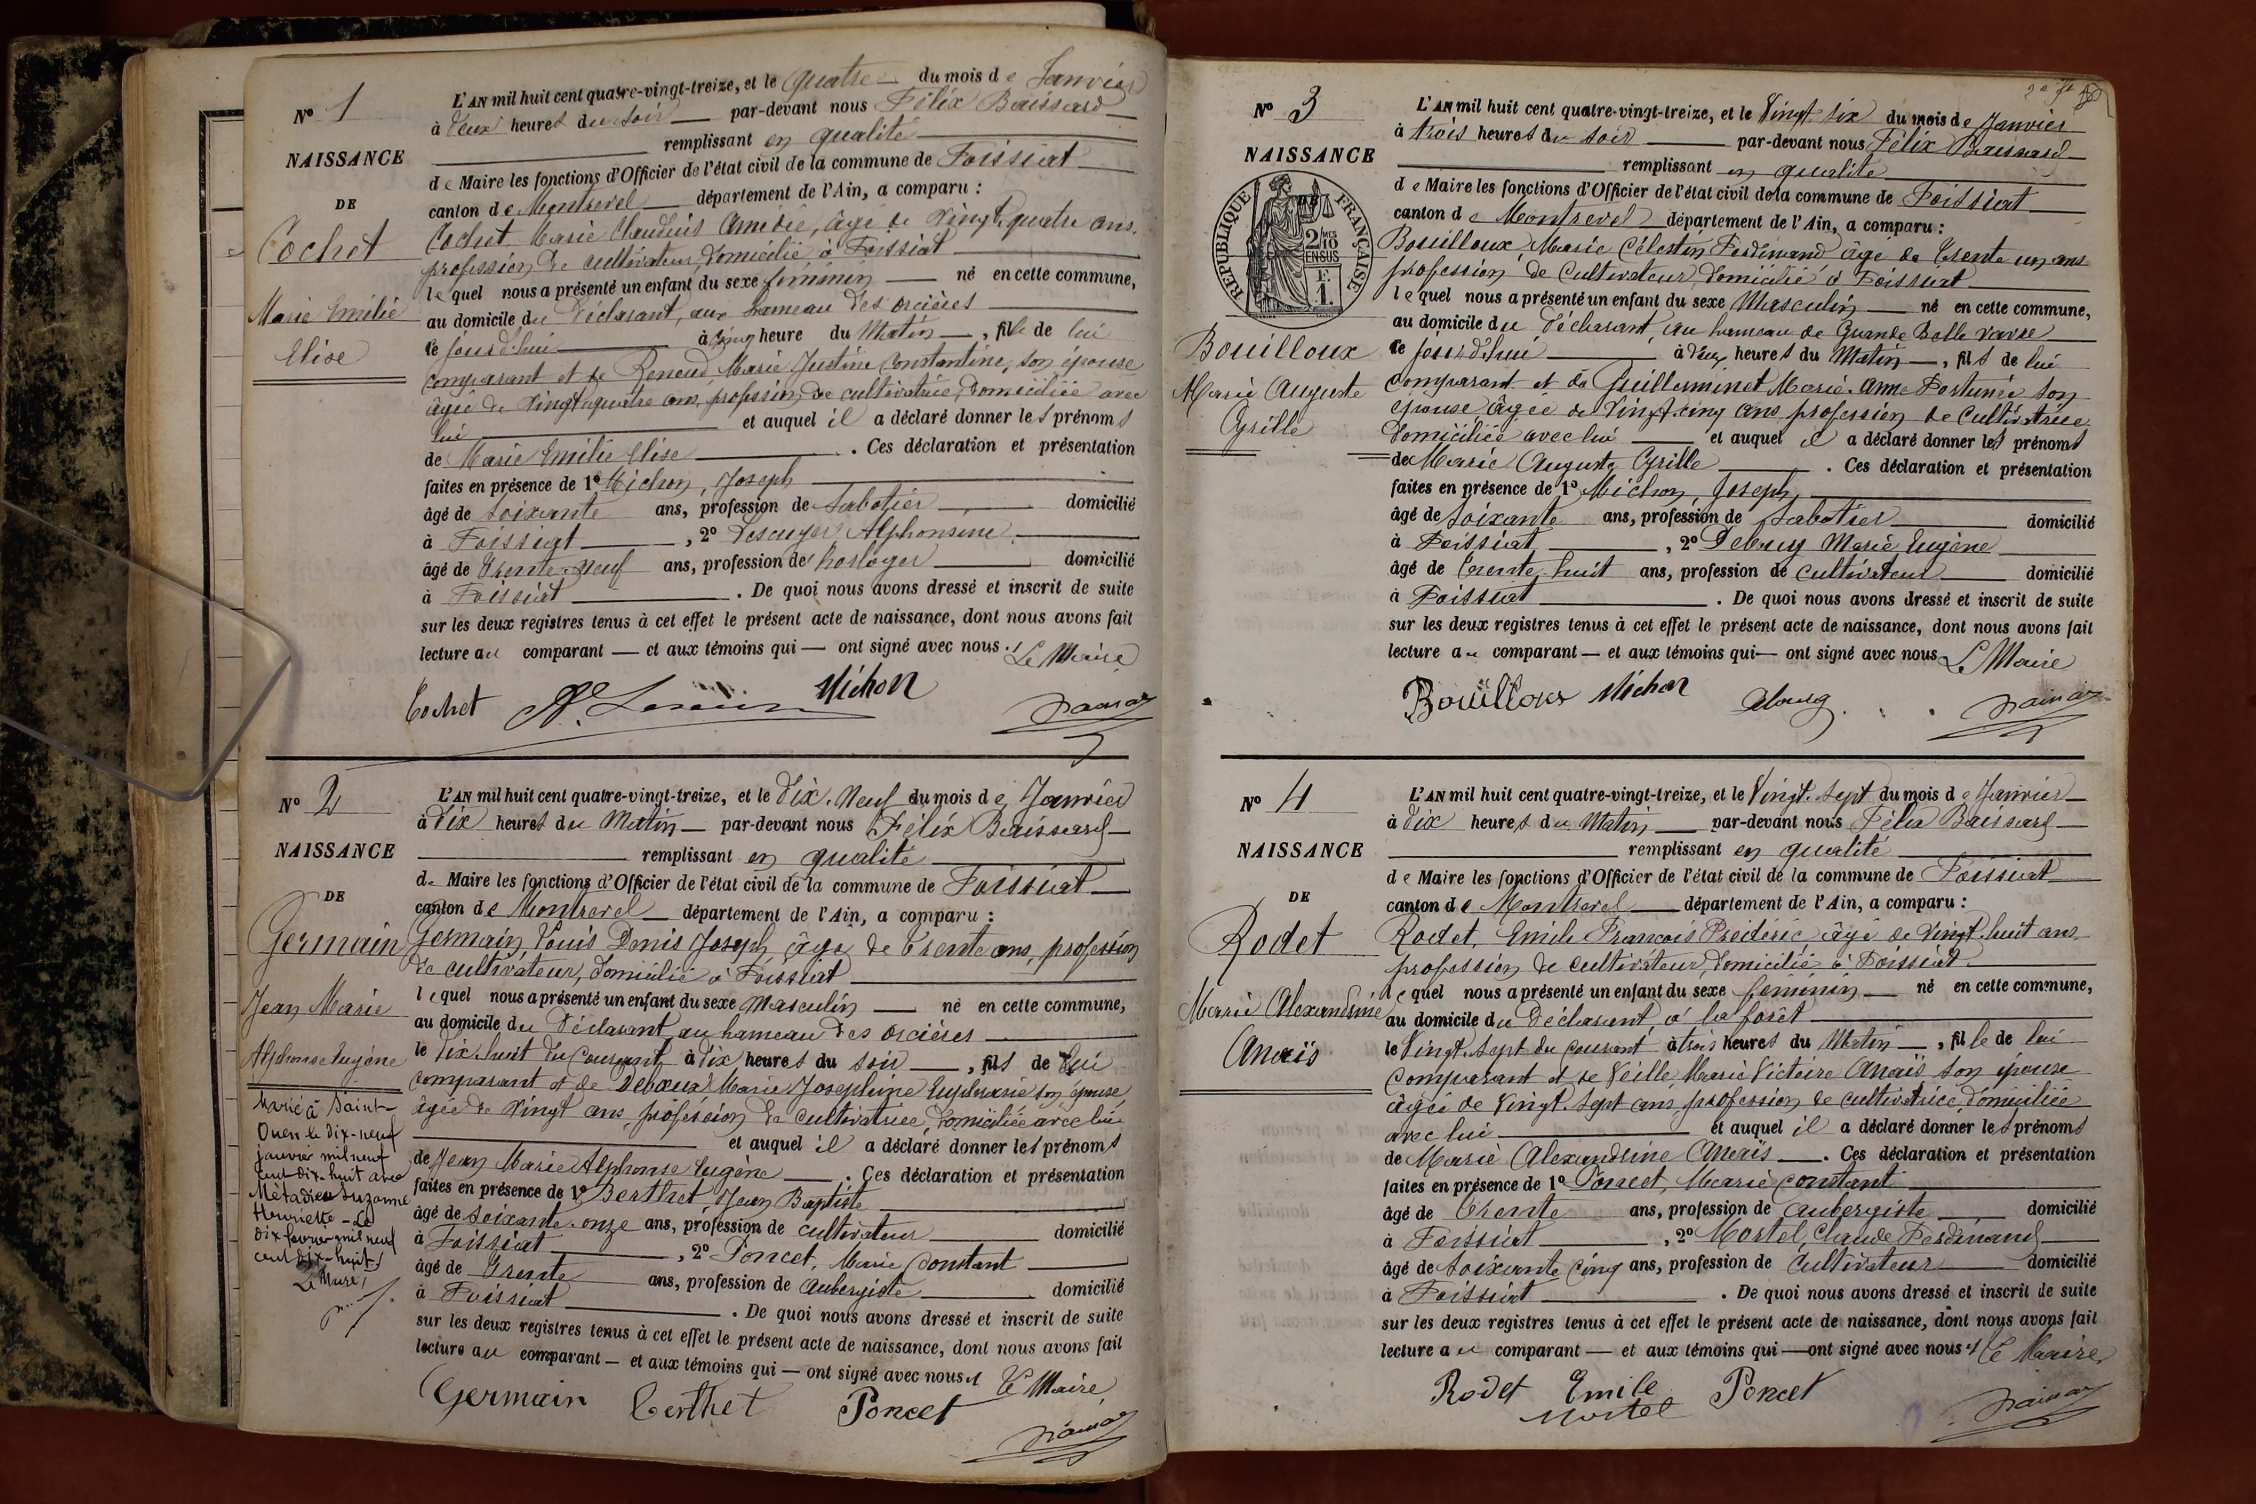 N° 1
NAISSANCE
DE
Cochet
Marie Emilie
Elise
L'AN mil huit cent quatre-vingt-treize, et le quatre du mois de Janvier
à deux heures du soir par-devant nous Félix Baissard
remplissant en qualité
de Maire les fonctions d'Officier de l'état civil de la commune de Foissiat
canton de Montrevel département de l'Ain, a comparu :
Cochet Marie Claudius Amédée, âgé de vingt quatre ans,
profession de cultivateur, domicilié à Foissiat
lequel nous a présenté un enfant du sexe féminin né en cette commune,
au domicile du déclarant, au hameau des orcières
ce jourd'hui à cinq heure du Matin, fille de lui
comparant et de Renoud Marie Justine Constantine, son épouse
âgée de vingt quatre ans, profession de cultivatrice, domiciliée avec
lui et auquel il a déclaré donner les prénoms
de Marie Emilie Elise. Ces déclaration et présentation
faites en présence de 1° Michon, Joseph
âgé de soixante ans, profession de sabotier domicilié
à Foissiat, 2° Lescuyer Alphonsine
âgé de trente-neuf ans, profession de horloger domicilié
à Foissiat. De quoi nous avons dressé et inscrit de suite
sur les deux registres tenus à cet effet le présent acte de naissance, dont nous avons fait
lecture au comparant et aux témoins qui ont signé avec nous./ Le Maire
Cochet Michon
N° 2
NAISSANCE
DE
Germain
Jean Marie
Alphonse Eugène
Marié à Saint-
Ouen le dix-neuf
janvier mil neuf
cent dix-huit avec
Métadieu Suzanne
Henriette - Le
dix février mil neuf
cent dix-huit./
Le Maire,
L'AN mil huit cent quatre-vingt-treize, et le dix-Neuf du mois de Janvier
à dix heures du Matin par-devant nous Félix Baissard
remplissant en qualité
de Maire les fonctions d'Officier de l'état civil de la commune de Foissiat
canton de Montrevel département de l'Ain, a comparu :
Germain Louis Denis Joseph, âgé de trente ans, profession
de cultivateur, domicilié à Foissiat
lequel nous a présenté un enfant du sexe Masculin né en cette commune,
au domicile du déclarant, au hameau des orcières
le dix-huit du Courant, à dix heures du soir, fils de lui
comparant et de Debœuf Marie Joséphine Euphrasie son épouse
âgée de vingt ans, profession de cultivatrice, domiciliée avec lui
et auquel il a déclaré donner les prénoms
de Jean Marie Alphonse Eugène. Ces déclaration et présentation
faites en présence de 1° Berthet, Jean Baptiste
âgé de soixante-onze ans, profession de cultivateur domicilié
à Foissiat, 2° Poncet, Marie Constant
âgé de trente ans, profession de aubergiste domicilié
à Foissiat. De quoi nous avons dressé et inscrit de suite
sur les deux registres tenus à cet effet le présent acte de naissance, dont nous avons fait
lecture au comparant et aux témoins qui ont signé avec nous./ Le Maire
Germain Berthet Poncet
N° 3
NAISSANCE
RÉPUBLIQUE FRANÇAISE
2/10 MES
EN SUS
1 F.
Bouilloux
Marie Auguste
Cyrille
L'AN mil huit cent quatre-vingt-treize, et le Vingt-six du mois de Janvier
à trois heures du soir par-devant nous Félix Baissard
remplissant en qualité
de Maire les fonctions d'Officier de l'état civil de la commune de Foissiat
canton de Montrevel département de l'Ain, a comparu :
Bouilloux, Marie Célestin Ferdinand âgé de trente un ans
profession de Cultivateur, domicilié à Foissiat
lequel nous a présenté un enfant du sexe Masculin né en cette commune,
au domicile du déclarant, au hameau de Grande Belle vavre
ce jourd'hui à deux heures du Matin, fils de lui
comparant et de Guillerminet Marie-Anne Fortunée son
épouse âgée de Vingt-cinq ans profession de Cultivatrice
domiciliée avec lui et auquel il a déclaré donner les prénoms
de Marie Auguste Cyrille. Ces déclaration et présentation
faites en présence de 1° Michon, Joseph,
âgé de soixante ans, profession de sabotier domicilié
à Foissiat, 2° Debuy Marie Eugène
âgé de trente huit ans, profession de cultivateur domicilié
à Foissiat. De quoi nous avons dressé et inscrit de suite
sur les deux registres tenus à cet effet le présent acte de naissance, dont nous avons fait
lecture au comparant et aux témoins qui ont signé avec nous Le Maire
Bouilloux Michon
N° 4
NAISSANCE
DE
Rodet
Marie Alexandrine
Anaïs
L'AN mil huit cent quatre-vingt-treize, et le Vingt-Sept du mois de Janvier
à dix heures du Matin par-devant nous Félix Baissard
remplissant en qualité
de Maire les fonctions d'Officier de l'état civil de la commune de Foissiat
canton de Montrevel département de l'Ain, a comparu :
Rodet, Emile François Frédéric âgé de vingt-huit ans
profession de cultivateur, domicilié à Foissiat
lequel nous a présenté un enfant du sexe féminin né en cette commune,
au domicile du Déclarant, à la forêt
le Vingt-Sept du courant à trois heures du Matin, fille de lui
comparant et de Veille, Marie Victoire Anaïs son épouse
âgée de vingt-sept ans, profession de cultivatrice, domiciliée
avec lui et auquel il a déclaré donner les prénoms
de Marie Alexandrine Anaïs. Ces déclaration et présentation
faites en présence de 1° Poncet, Marie Constant
âgé de trente ans, profession de aubergiste domicilié
à Foissiat, 2° Mortel, Claude Ferdinand
âgé de soixante cinq ans, profession de Cultivateur domicilié
à Foissiat. De quoi nous avons dressé et inscrit de suite
sur les deux registres tenus à cet effet le présent acte de naissance, dont nous avons fait
lecture au comparant et aux témoins qui ont signé avec nous./ Le Maire
Rodet Emile Poncet
Mortel